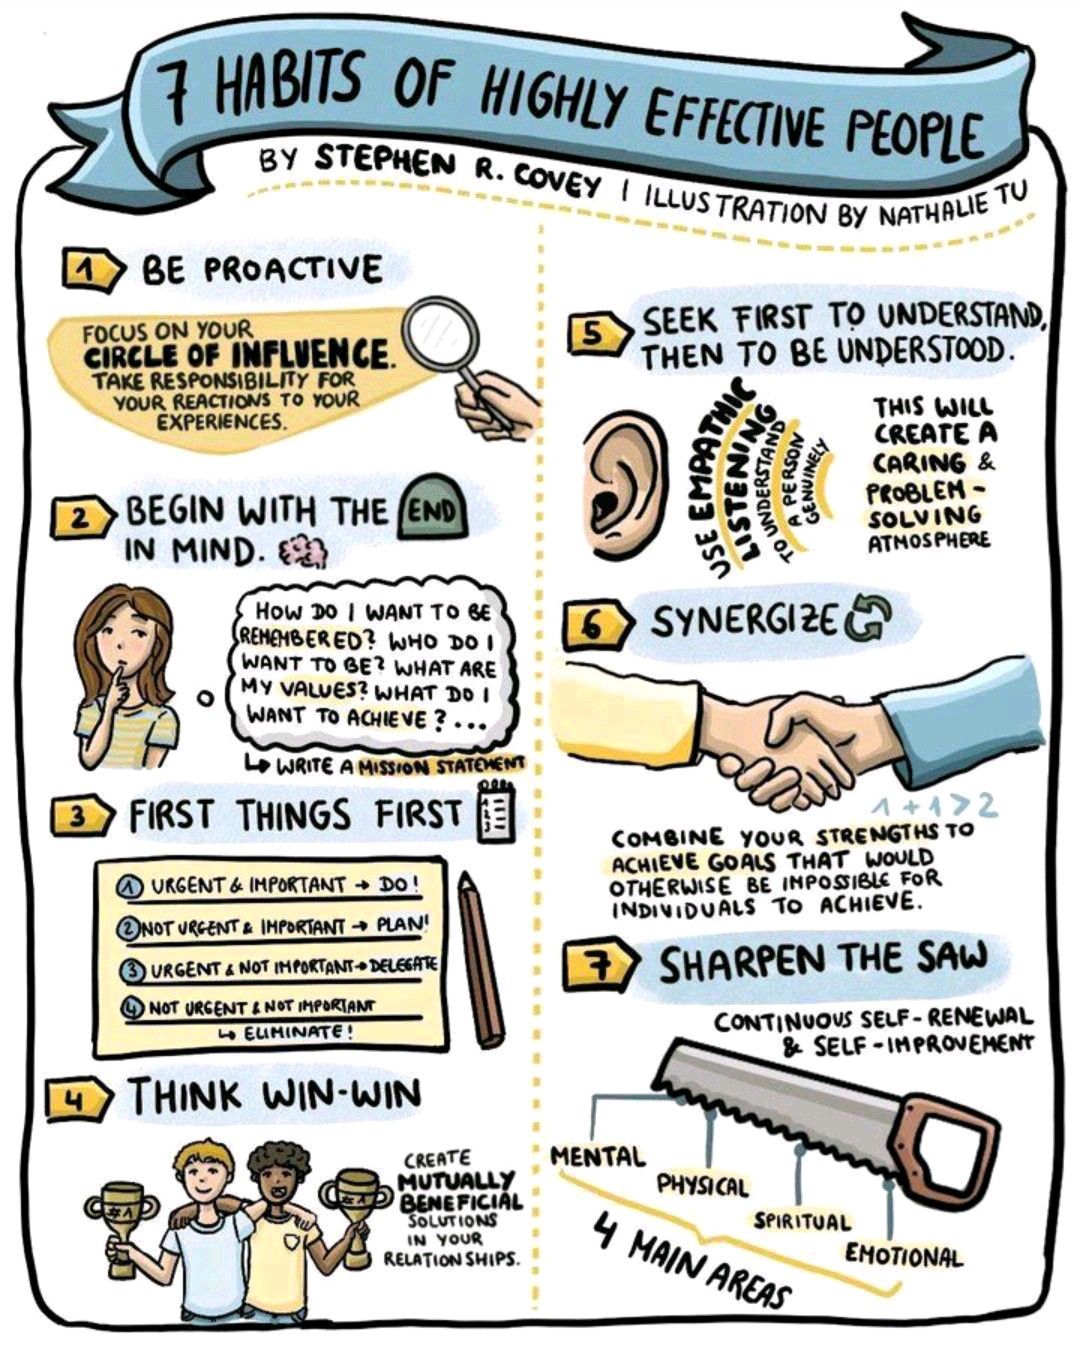 7 HABITS OF HIGHLY EFFECTIVE PEOPLE
BY STEPHEN R. COVEY | ILLUSTRATION BY NATHALIE TU
1 BE PROACTIVE
FOCUS ON YOUR
CIRCLE OF INFLUENCE.
TAKE RESPONSIBILITY FOR
YOUR REACTIONS TO YOUR
EXPERIENCES.
2 BEGIN WITH THE END
IN MIND.
HOW DO I WANT TO BE
REMEMBERED? WHO DO I
WANT TO BE? WHAT ARE
MY VALUES? WHAT DO I
WANT TO ACHIEVE?...
↳ WRITE A MISSION STATEMENT
3 FIRST THINGS FIRST
1 2 3
1 URGENT & IMPORTANT → DO!
2 NOT URGENT & IMPORTANT → PLAN!
3 URGENT & NOT IMPORTANT → DELEGATE
4 NOT URGENT & NOT IMPORTANT
↳ ELIMINATE!
4 THINK WIN-WIN
#1
#1
CREATE
MUTUALLY
BENEFICIAL
SOLUTIONS
IN YOUR
RELATIONSHIPS.
5 SEEK FIRST TO UNDERSTAND,
THEN TO BE UNDERSTOOD.
USE EMPATHIC
LISTENING
TO UNDERSTAND
A PERSON
GENUINELY
THIS WILL
CREATE A
CARING &
PROBLEM-
SOLVING
ATMOSPHERE
6 SYNERGIZE
1+1>2
COMBINE YOUR STRENGTHS TO
ACHIEVE GOALS THAT WOULD
OTHERWISE BE IMPOSSIBLE FOR
INDIVIDUALS TO ACHIEVE.
7 SHARPEN THE SAW
CONTINUOUS SELF-RENEWAL
& SELF-IMPROVEMENT
MENTAL
PHYSICAL
SPIRITUAL
EMOTIONAL
4 MAIN AREAS